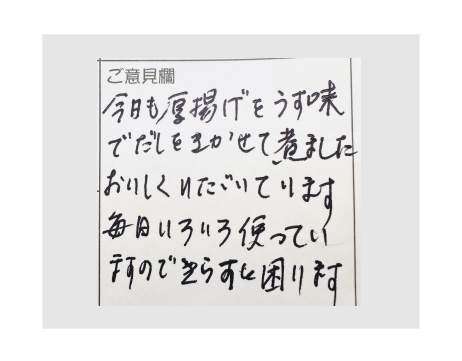 ご意見欄
今日も厚揚げをうす味
でだしをきかせて煮ました
おいしくいただいています
毎日いろいろ使ってい
ますのできらすと困ります